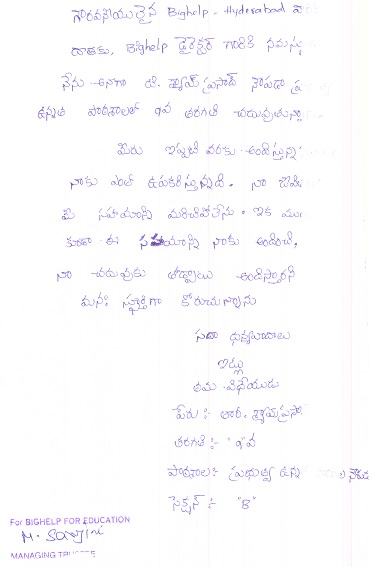 గౌరవనీయులైన Bighelp - Hyderabad వారి
దాతకు, Bighelp డైరెక్టర్ గారికి నమస్కా
నేను అనగా జి. శ్యామ్ ప్రసాద్ నౌపడా ప్ర
ఉన్నత పాఠశాలలో 9వ తరగతి చదువుతున్నా
మీరు ఇప్పటి వరకు అందిస్తున్న
నాకు ఎంతో ఉపకరిస్తున్నది. నా జీవి
మీ సహాయాన్ని మరిచిపోలేను. ఇక ము
కూడా ఈ సహాయాన్ని నాకు అందించి,
నా చదువుకు తోడ్పాటు అందిస్తారని
మనః స్ఫూర్తిగా కోరుచున్నాను
సదా ధన్యవాదాలు
ఇట్లు
తమ విధేయుడు
పేరు :- శ్యామ్ ప్రసా
తరగతి :- "9"వ
పాఠశాల :- ప్రభుత్వ ఉన్న
సెక్షన్ :- "B"
For BIGHELP FOR EDUCATION
M. Sanjini
MANAGING TRUSTEE